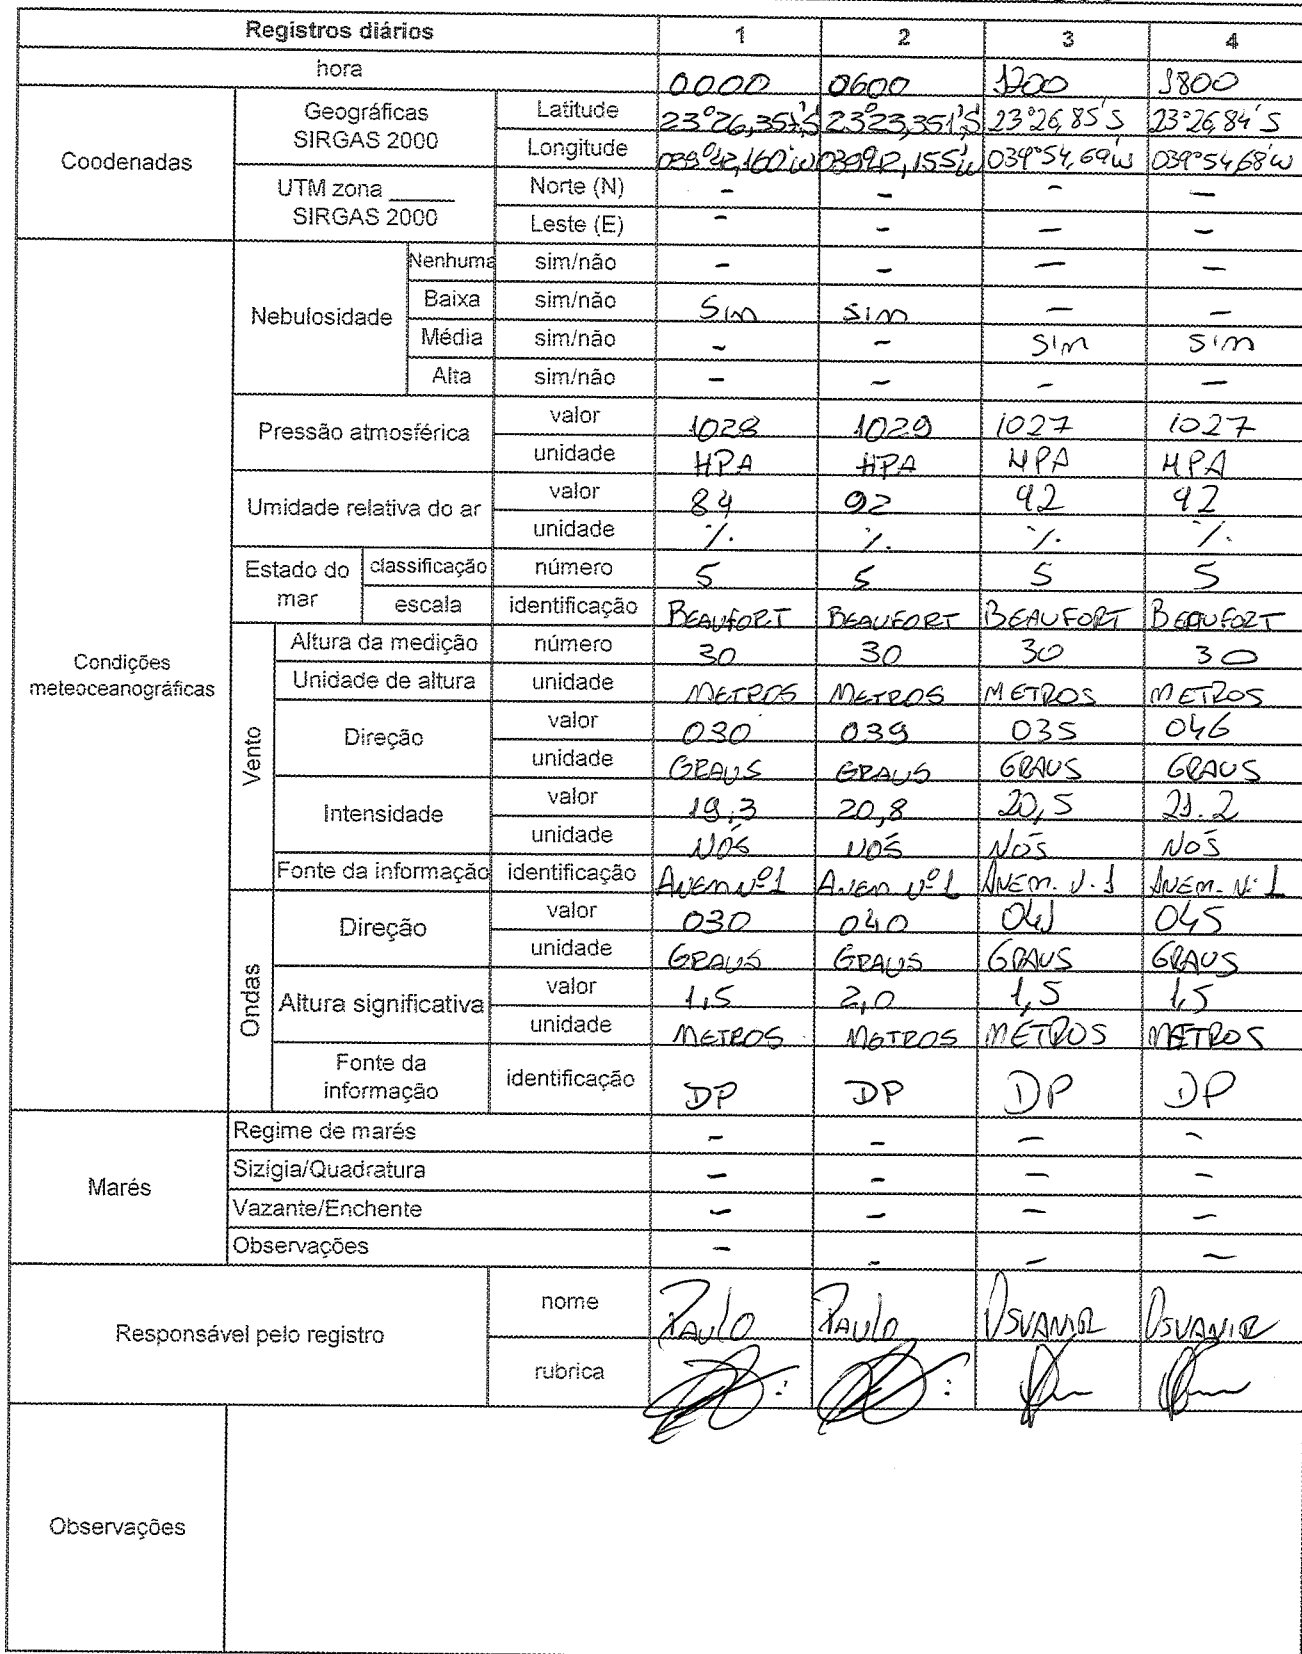 Registros diários 1 2 3 4
hora 0000 0600 1200 1800
Coodenadas
Geográficas SIRGAS 2000
Latitude 23°26,351'S 23°23,351'S 23°26,85'S 23°26,84'S
Longitude 039°42,160'W 039°42,155'W 039°54,69'W 039°54,68'W
UTM zona _____ SIRGAS 2000
Norte (N) - - - -
Leste (E) - - - -
Condições meteoceanográficas
Nebulosidade
Nenhuma sim/não - - - -
Baixa sim/não Sim Sim - -
Média sim/não - - Sim Sim
Alta sim/não - - - -
Pressão atmosférica
valor 1028 1029 1027 1027
unidade HPA HPA HPA HPA
Umidade relativa do ar
valor 84 92 92 92
unidade % % % %
Estado do mar
classificação número 5 5 5 5
escala identificação BEAUFORT BEAUFORT BEAUFORT BEAUFORT
Vento
Altura da medição número 30 30 30 30
Unidade de altura unidade METROS METROS METROS METROS
Direção
valor 030 039 035 046
unidade GRAUS GRAUS GRAUS GRAUS
Intensidade
valor 19,3 20,8 20,5 21.2
unidade NÓS NÓS NÓS NÓS
Fonte da informação identificação ANEM Nº1 ANEM Nº1 ANEM. N.1 ANEM. N: 1
Ondas
Direção
valor 030 040 041 045
unidade GRAUS GRAUS GRAUS GRAUS
Altura significativa
valor 1,5 2,0 1,5 1,5
unidade METROS METROS METROS METROS
Fonte da informação identificação DP DP DP DP
Marés
Regime de marés - - - -
Sizígia/Quadratura - - - -
Vazante/Enchente - - - -
Observações - - - -
Responsável pelo registro
nome PAULO PAULO OSVANIR OSVANIR
rubrica
Observações